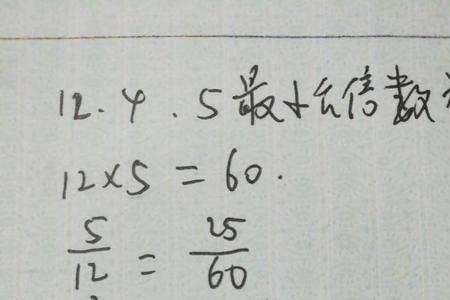 12.4.5最小公倍数
12×5=60.
5/12=25/60